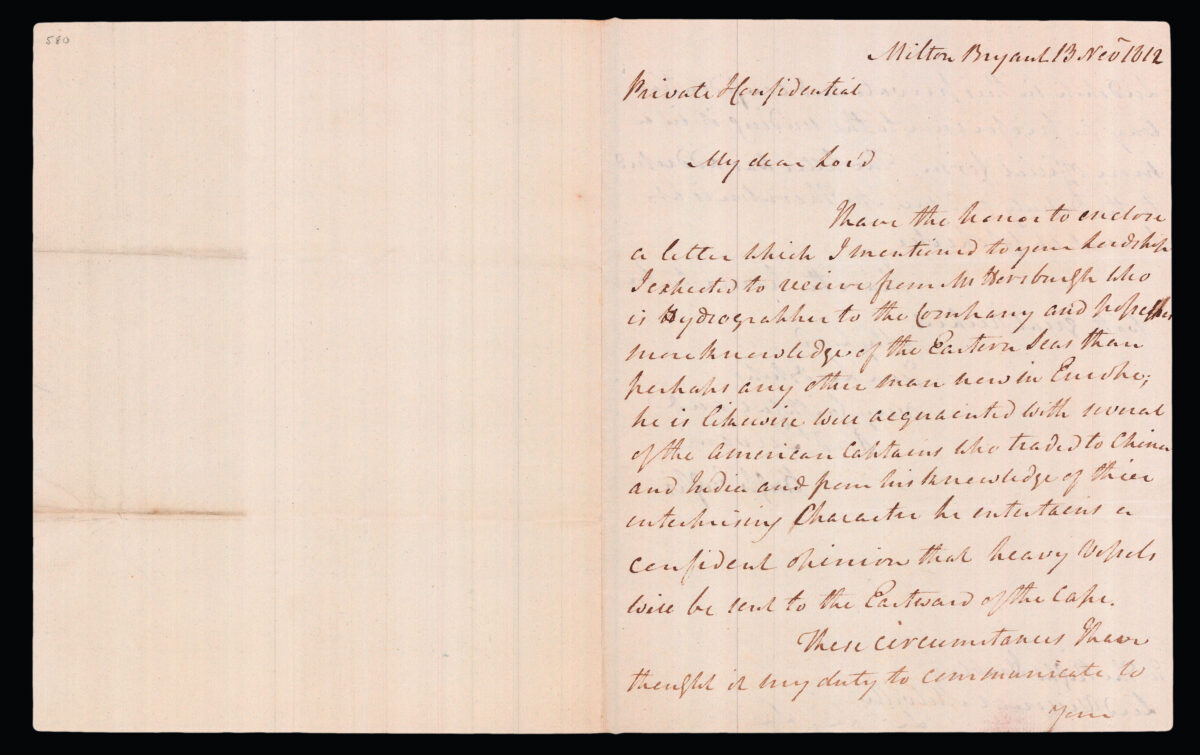 580
Milton Bryant 13 Nov 1812
Private & Confidential
My dear Lord
I have the honor to enclose
a letter which I mentioned to your Lordship
I expected to receive from Mr Horsburgh who
is Hydrographer to the Company and possesses
more knowledge of the Eastern Seas than
perhaps any other man now in Europe;
he is likewise well acquainted with several
of the American Captains who traded to China
and India and from his knowledge of thier
enterprising Character he entertains a
confident opinion that heavy Vessels
will be sent to the Eastward of the Cape.
These circumstances I have
thought it my duty to communicate to
Your